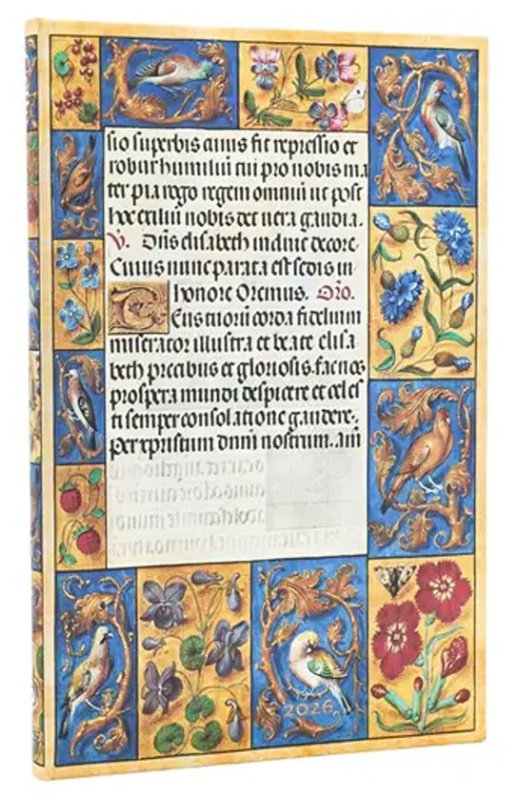 sio superbis cuius fit repressio et
robur humiliū cui pro nobis ma
ter pia rogo regem omniū ut post
hoc exiliū nobis det uera gaudia.
V. Dn̄s elisabeth induit decore
Cuius nunc parata est sedis in
honore Oremus. Oro.
Eus tuorū corda fidelium
miserator illustra et beate elisa
beth precibus et gloriosis. fac nos
prospera mundi despicere et celes
ti semper consolatione gaudere.
Per xpristum dnm̄ nostrum. am̄
2026